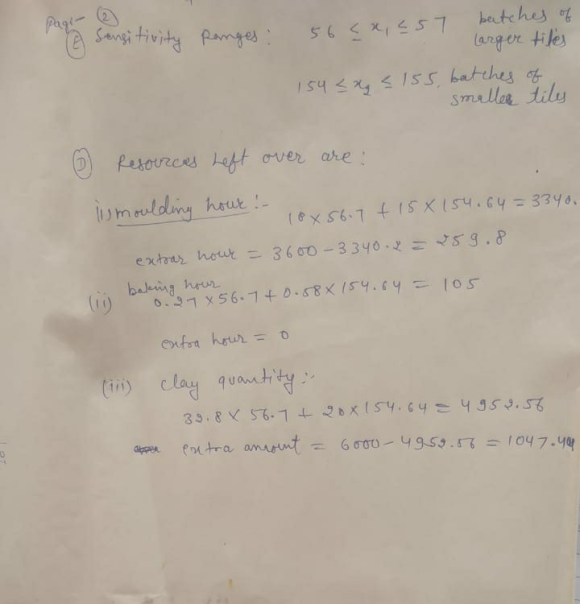 Page - ②
Ⓔ Sensitivity Ranges : 56 ≤ x₁ ≤ 57 batches of
larger tiles
154 ≤ x₂ ≤ 155, batches of
smaller tiles
Ⓓ Resources Left over are :
(i) moulding hour :- 18 × 56.7 + 15 × 154.64 = 3340.
extra hour = 3600 - 3340.2 = 259.8
(ii) baking hour
0.27 × 56.7 + 0.58 × 154.64 = 105
extra hour = 0
(iii) clay quantity :-
32.8 × 56.7 + 20 × 154.64 = 4952.56
extra amount = 6000 - 4952.56 = 1047.44